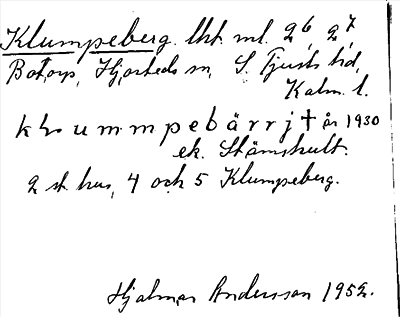 Klumpeberg. lht. ml. 2⁶ 2⁷
Botorp, Hjorteds sn, S. Tjusts hd,
Kalm. l.
k l u m m p e b ä r r j † år 1930
ek. Stämshult.
2 st. hus, 4 och 5 Klumpeberg.
Hjalmar Andersson 1952.